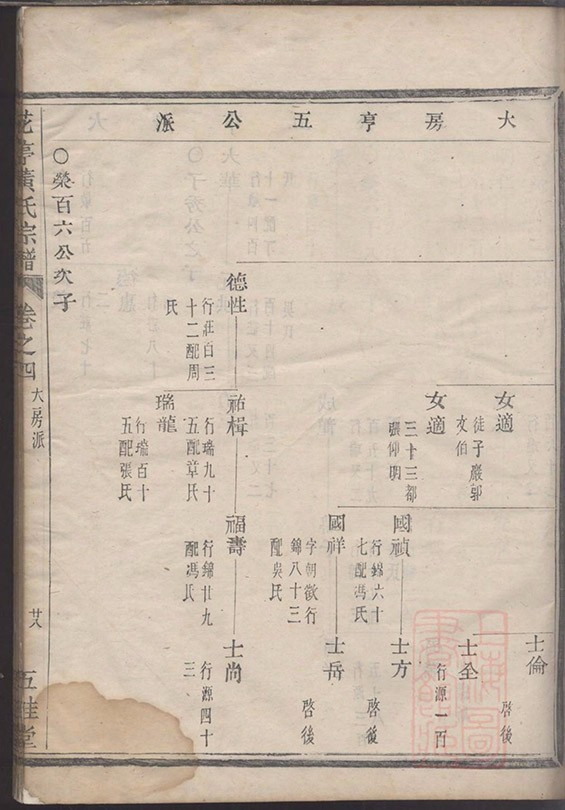 大房亨五公派
士倫
啓後
女適
徒子巖郭
文伯
士全
行源一百
女適
三十三都
張仰明
國禎
行錦六十
七配馮氏
士方
啓後
國祥
字朝徵行
錦八十三
配吳氏
士岳
啓後
德性
行莊百三
十二配周
氏
祐楫
行瑞九十
五配章氏
福壽
行錦廿九
配馮氏
士尚
行源四十
三
瑞龍
行瑞百十
五配張氏
○榮百六公次子
花亭黃氏宗譜
卷之四
大房派
五桂堂